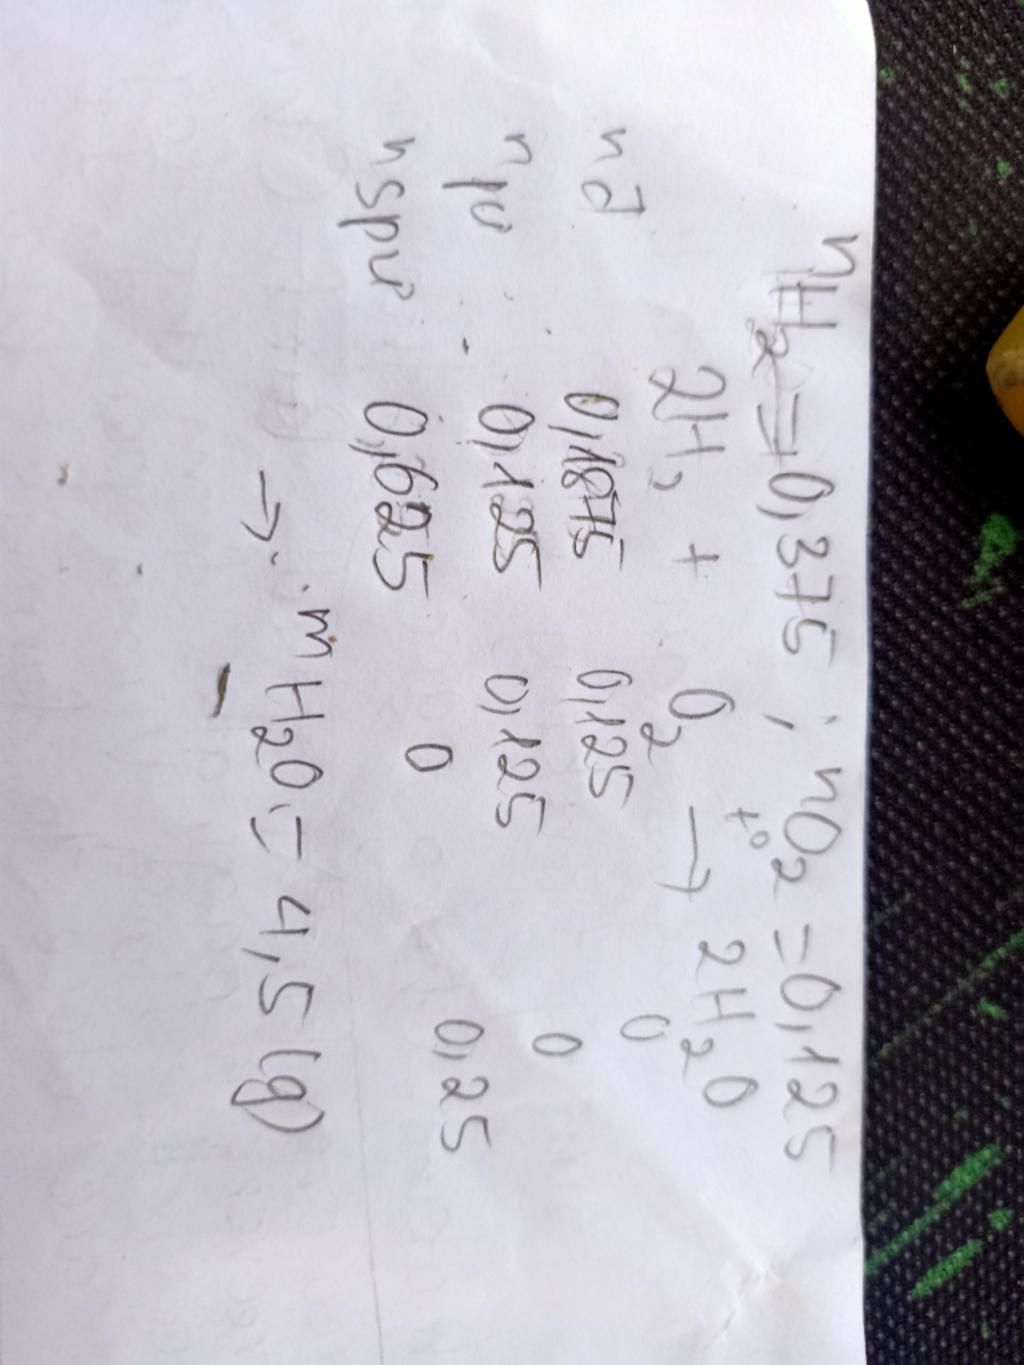 nH2 = 0,375 ; nO2 = 0,125
2H2 + O2 -t°-> 2H2O
nđ 0,1875 0,125 0
npư 0,125 0,125 0
nspư 0,625 0 0,25
→ mH2O = 4,5 (g)